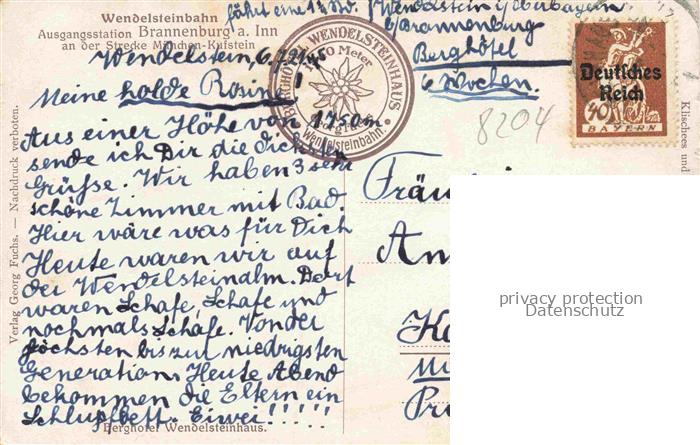 Wendelsteinbahn
Ausgangsstation Brannenburg a. Inn
an der Strecke München-Kufstein
fährt eine
Wendelstein i/Oberbayern
b/Brannenburg
Berghôtel
6 Wochen.
Wendelstein, 6.
Meine holde Rosine!
Aus einer Höhe von 1750m
sende ich Dir die dicksten
Grüsse. Wir haben 3 sehr
schöne Zimmer mit Bad.
Hier wäre was für Dich
Heute waren wir auf
der Wendelsteinalm. Dort
waren Schafe, Schafe und
nochmals Schafe. Von der
höchsten bis zur niedrigsten
Generation. Heute Abend
bekommen die Eltern ein
Schlupfbett. Eiwei!!!!!
Berghotel Wendelsteinhaus.
Verlag Georg Fuchs. — Nachdruck verboten.
WENDELSTEINHAUS
Meter
Wendelsteinbahn.
8204
Deutsches
Reich
40
BAYERN
Klischees und
Fräu
An
privacy protection
Datenschutz